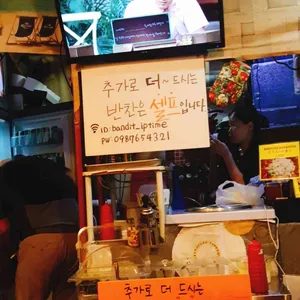 추가로 더~ 드시는
반찬은 셀프입니다
ID:bandit_iptime
PW 0987654321
추가로 더 드시는